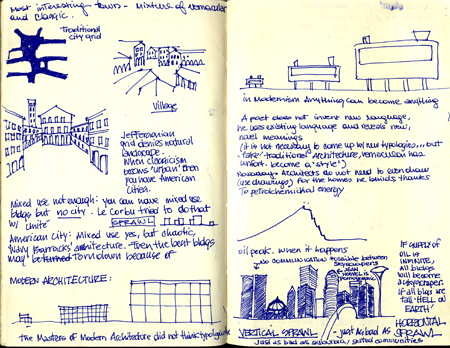 Most interesting towns - Mixture of vernacular
and Classic.
Traditional
City grid
Village
Jeffersonian
grid denies natural
landscape.
When classicism
becomes 'urban' then
you have American
cities.
Mixed use not enough: you can have mixed use
bldgs but no city. Le Corbu tried to do that
w/ Unité
SPRAWL
American City: Mixed use yes, but chaotic,
Navy Barracks architecture. Then the best bldgs
may be torn down because of
MODERN ARCHITECTURE:
The Masters of Modern Architecture did not think typologically
in Modernism Anything can become anything
A poet does not invent new language,
he uses existing language and reveals new,
novel meanings
(it is not necessary to come up w/ new typologies... but
'fake' traditional architecture, vernacular has
unfort. become a 'style')
Nowadays Architects do not need to even draw
(use drawings) for the homes he builds thanks
To petrochemical energy
oil peak. when it happens
NO COMMUNICATION possible between
skyscrapers
IF SUPPLY OF
OIL IS
INFINITE,
All bldgs
will become
a skyscraper.
if all blgs are
tall 'HELL ON
EARTH'
VERTICAL SPRAWL - just as bad as
HORIZONTAL
SPRAWL
Just as bad as suburbia / gated communities